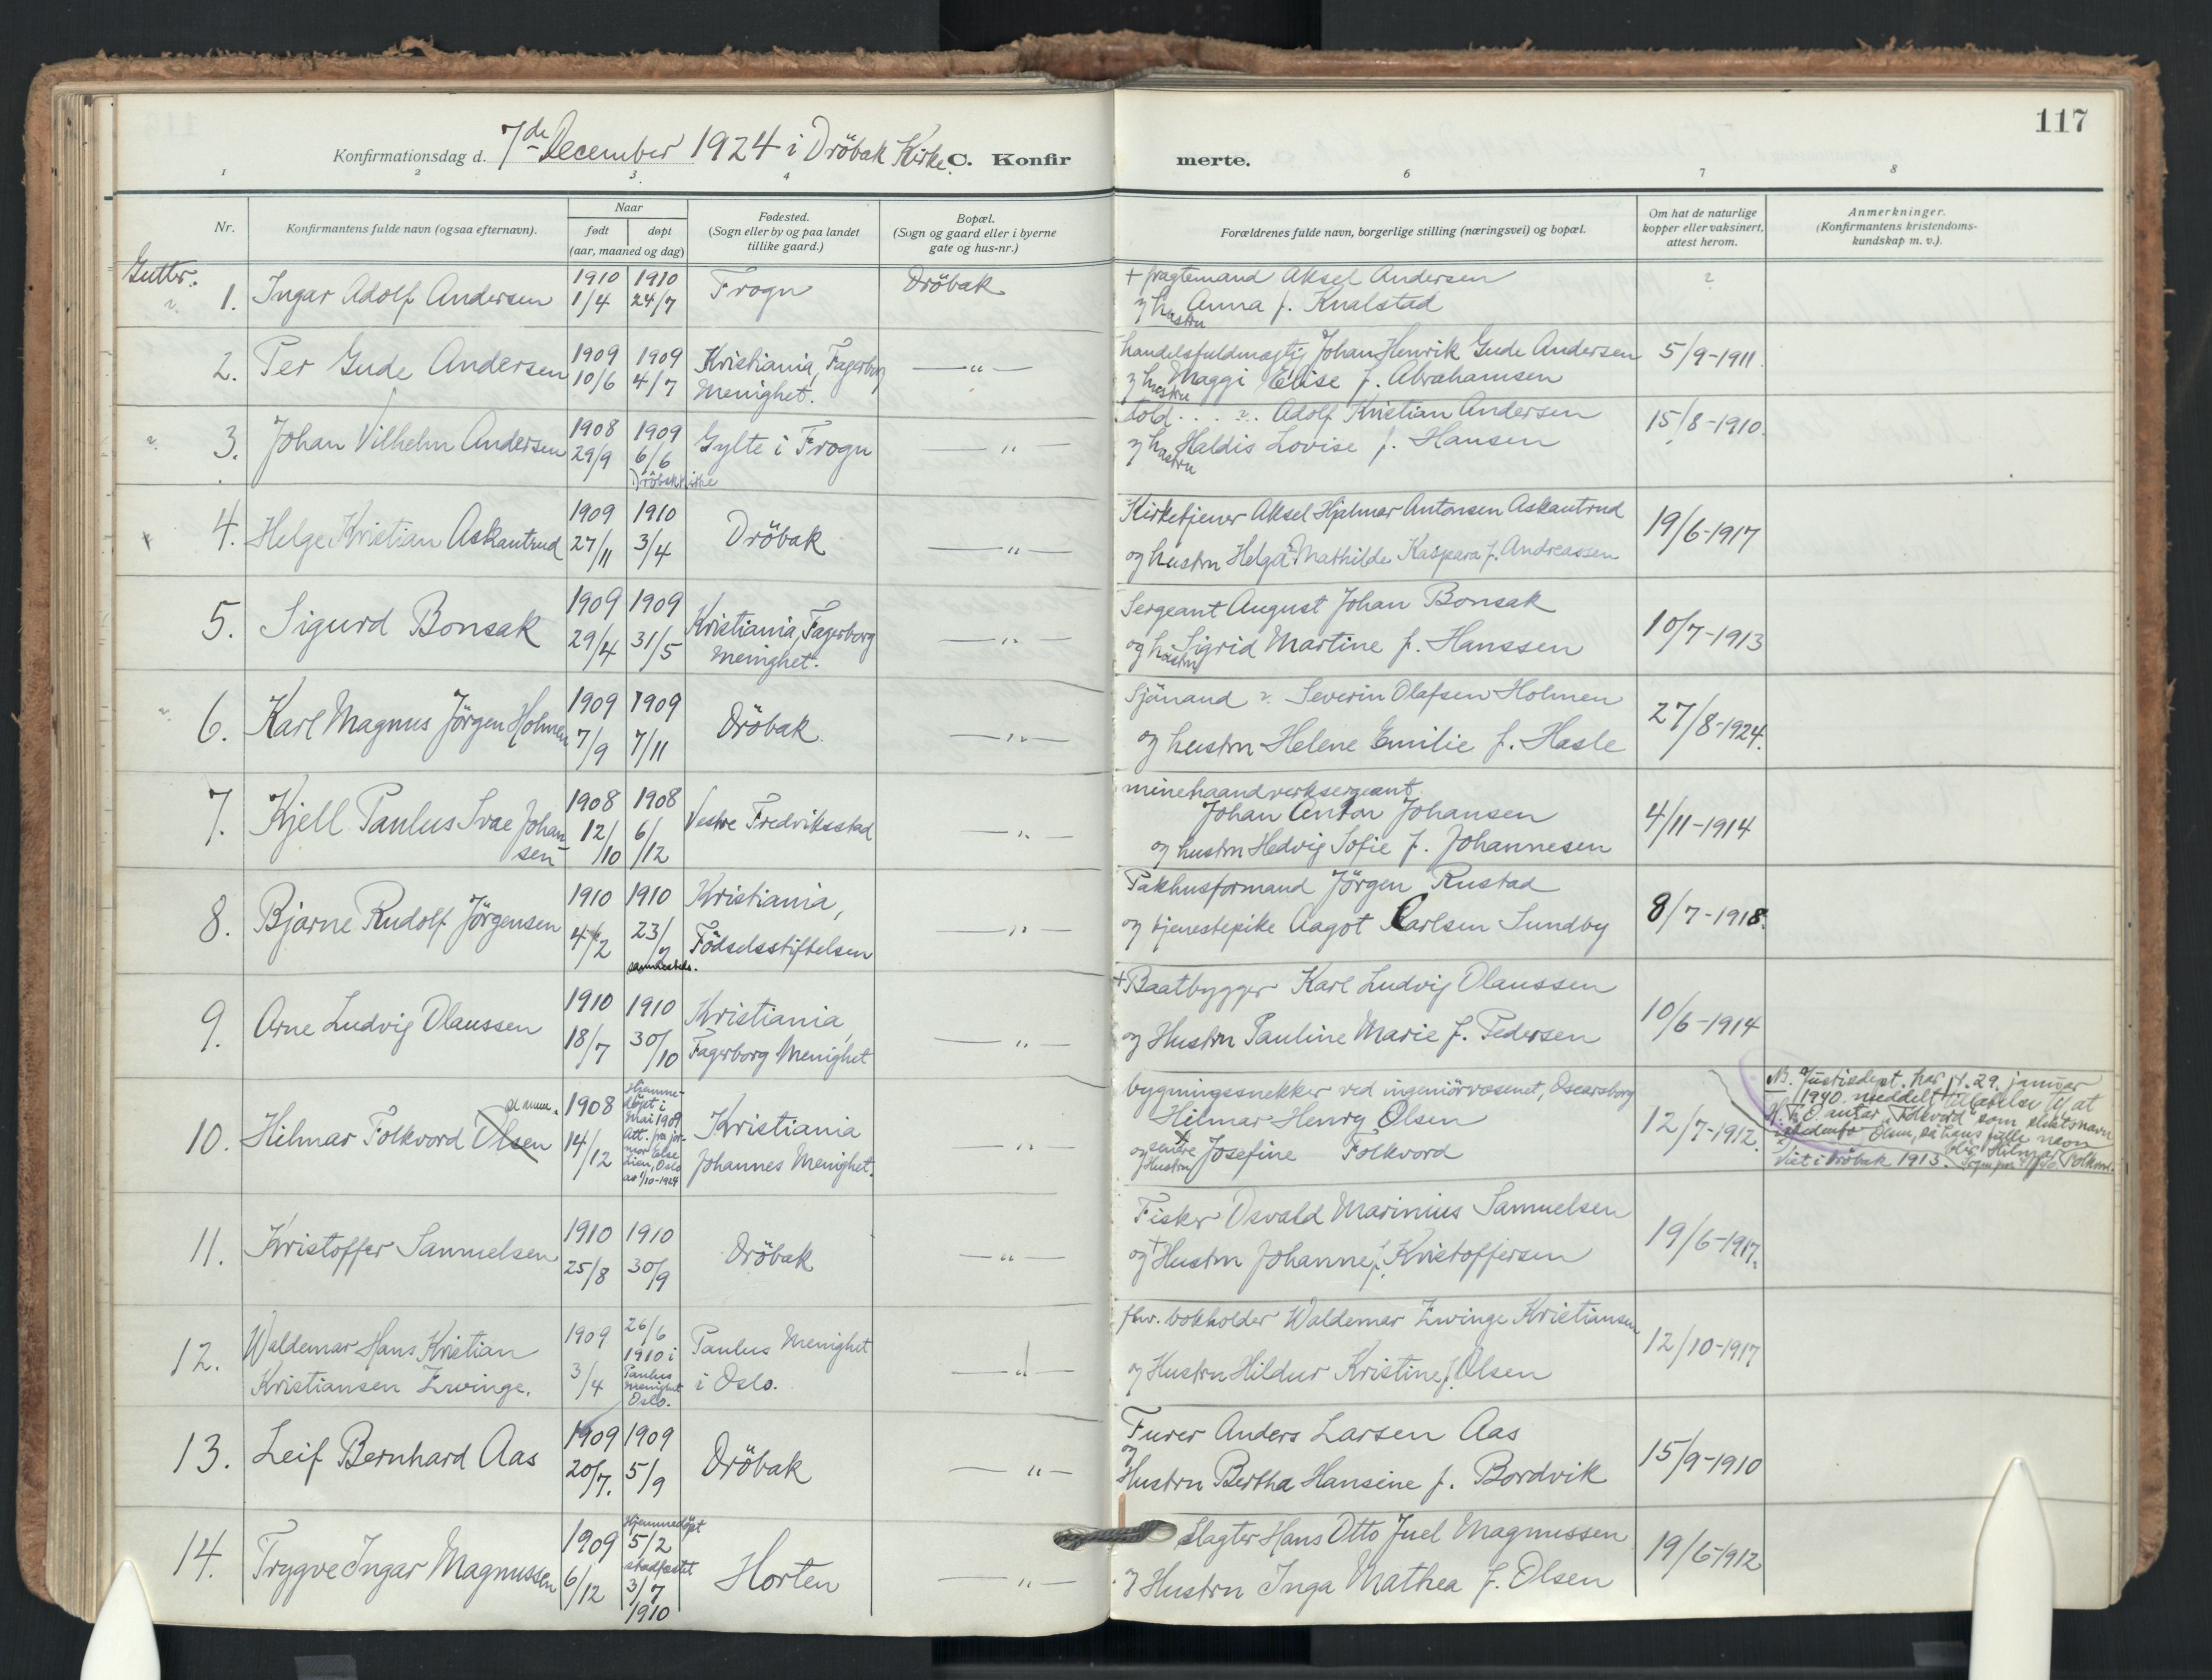 117
Konfirmationsdag d. 7de December 1924 i Dröbak Kirke. C. Konfir
merte.
1 2 3. 4 6 7 8
Nr.
Konfirmantens fulde navn (ogsaa efternavn).
Naar
født døpt
(aar, maaned og dag)
Fødested.
(Sogn eller by og paa landet
tillike gaard.)
Bopæl.
(Sogn og gaard eller i byerne
gate og hus-nr.)
Forældrenes fulde navn, borgerlige stilling (næringsvei) og bopæl.
Om hat de naturlige
kopper eller vaksinert,
attest herom.
Anmerkninger.
(Konfirmantens kristendoms-
kundskap m. v.).
Gutter.
1. Ingar Adolf Andersen
1910 1/4
1910 24/7
Frogn
Dröbak
+ fragtemand Aksel Andersen
og hustru Anna f. Knalstad
?
2. Per Gude Andersen
1909 10/6
1909 4/7
Kristiania, Fagerborg
Menighet.
—"—
handelsfuldmægtig Johan Henrik Gude Andersen
og hustru Maggi Elise f. Abrahamsen
5/9-1911.
3. Johan Vilhelm Andersen
1908 29/9
1909 6/6
Dröbak kirke
Gylte i Frogn
—"—
told . . . ? . Adolf Kristian Andersen
og hustru Haldis Lovise f. Hansen
15/8-1910.
4. Helge Kristian Askautrud
1909 27/11
1910 3/4
Dröbak
—"—
Kirketjener Aksel Hjalmar Antonsen Askautrud
og hustru Helga Mathilde Kaspara f. Andreassen
19/6-1917
5. Sigurd Bonsak
1909 29/4
1909 31/5
Kristiania, Fagerborg
Menighet.
—"—
Sergeant August Johan Bonsak
og hustru Sigrid Martine f. Hanssen
10/7-1913
6. Karl Magnus Jörgen Holmen
1909 7/9
1909 7/11
Dröbak
—"—
Sjömand ? Severin Olafsen Holmen
og hustru Helene Emilie f. Hasle
27/8-1924.
7. Kjell Paulus Svae Johan-
sen
1908 12/10
1908 6/12
Vestre Fredriksstad
—"—
minehaandverksergeant
Johan Anton Johansen
og hustru Hedvig Sofie f. Johannesen
4/11-1914
8. Bjarne Rudolf Jörgensen
1910 4/2
1910 23/2
sammesteds.
Kristiania,
Födselsstiftelsen
—"—
Pakhusformand Jörgen Rustad
og tjenestepike Aagot Carlsen Sundby
8/7-1918.
9. Arne Ludvig Olaussen
1910 18/7
1910 30/10
Kristiania,
Fagerborg Menighet
—"—
+ Baatbygger Karl Ludvig Olaussen
og Hustru Pauline Marie f. Pedersen
10/6-1914
10. Hilmar Folkvord Olsen
se anm.
1908 14/12
Hjemme-
döpt i
Mai 1909
Att. fra jor-
mor Else
Lien, Oslo
av 1/10-1924
Kristiania
Johannes Menighet.
—"—
bygningssnekker ved ingeniörvæsenet, Oscarsborg
Hilmar Henry Olsen
og senere Hustru x Josefine Folkvord
12/7-1912.
N. Justisdept. har d. 29. januar
1940 meddelt tillatelse til at
H. F. O. antar "Folkvord" som slektsnavn
istedenfor Olsen, så hans fulle navn
blir Hilmar Folkvord.
x) Viet i Dröbak 1913.
11. Kristoffer Samuelsen
1910 25/8
1910 30/9
Dröbak
—"—
Fisker Osvald Marinius Samuelsen
og + Hustru Johanne f. Kristoffersen
19/6-1917.
12. Waldemar Hans Kristian
Kristiansen Zwinge.
1909 3/4
26/6
1910 i
Paulus
menighet
Oslo.
Paulus Menighet
i Oslo.
—"—
fhv. bokholder Waldemar Zwinge Kristiansen
og Hustru Hildur Kristine f. Olsen
12/10-1917
13. Leif Bernhard Aas
1909 20/7.
1909 5/9
Dröbak
—"—
Furer Anders Larsen Aas
og
Hustru Bertha Hansine f. Bordvik
15/9-1910
14. Trygve Ingar Magnussen
1909 6/12
Hjemmedöpt
5/2
stadfæstet
3/7
1910
Horten
—"—
Slagter Hans Otto Juel Magnussen
og Hustru Inga Mathea f. Olsen
19/6-1912